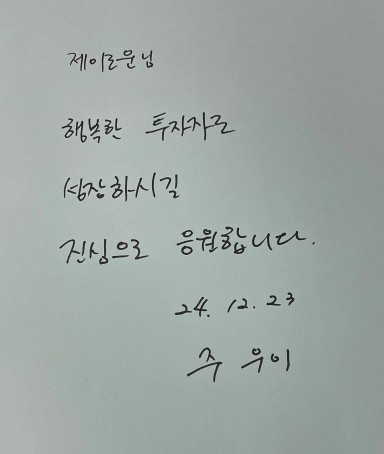 제이로운님
행복한 투자자로
성장하시길
진심으로 응원합니다.
24. 12. 23
주 우이